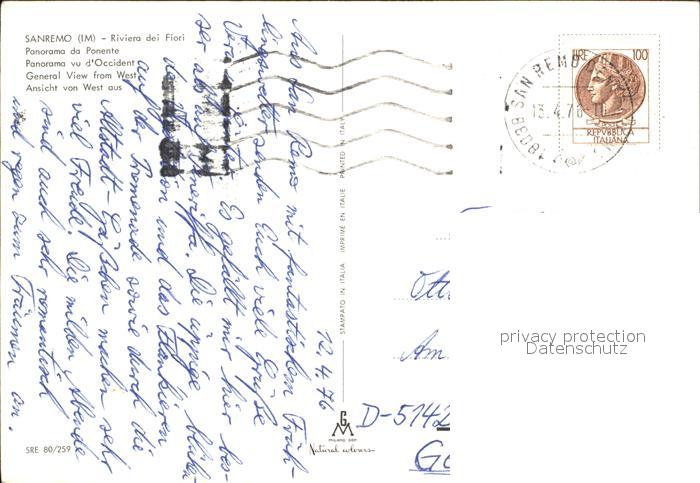 SANREMO (IM) - Riviera dei Fiori
Panorama da Ponente
Panorama vu d'Occident
General View from West
Ansicht von West aus
12.4.76
Aus San Remo mit fantastischem Früh-
lingswetter senden Euch viele Grüße
Vera Es gefällt mir hier bes-
ser als auf Teneriffa. Die üppige blühen-
de und das Flankieren
auf der Promenade sowie durch die
Altstadt-Gäßchen machen sehr
viel Freude! Die milden Abende
sind auch sehr romantisch
und regen zum Träumen an.
SRE 80/259
STAMPATO IN ITALIA IMPRIMÉ EN ITALIE PRINTED IN ITALY
GM
MILANO DEP
Natural colours
LIRE 100
REPVBBLICA
ITALIANA
SAN REMO
13.4.76
18038
Ott
Am
D-5142
privacy protection
Datenschutz